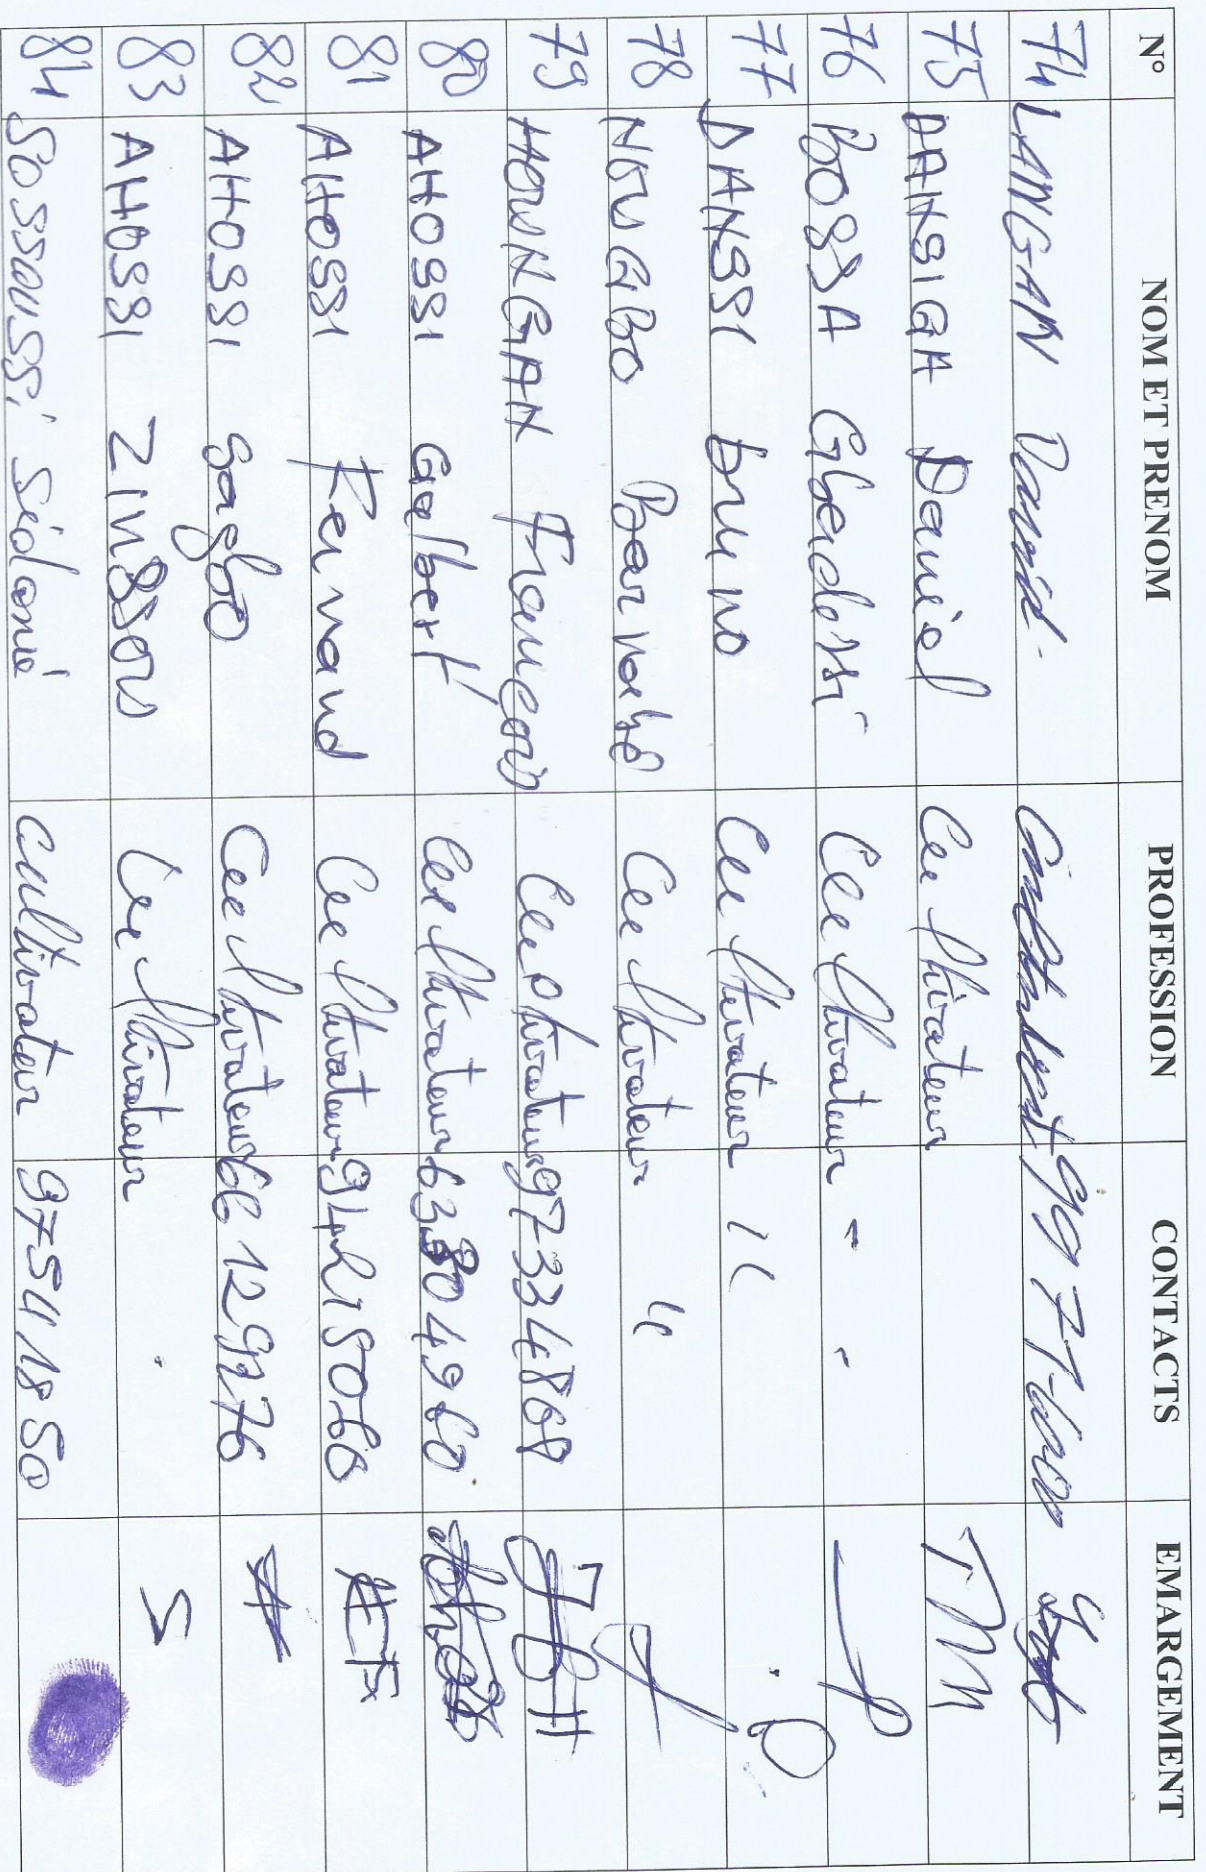 N° NOM ET PRENOM PROFESSION CONTACTS EMARGEMENT
74 LANGAN David
75 DANSIGA Daniel Cultivateur
76 BOSSA Gbedessi Cultivateur - -
77 DANSSI bruno Cultivateur 11
78 NOUGBO Barnabé Cultivateur "
79 HOUNGAN Francois Cultivateur 97334868
80 AHOSSI Galbert Cultivateur 63804960
81 AHOSSI Fernand Cultivateur 94215068
82 AHOSSI Sagbo Cultivateur 66129276
83 AHOSSI ZINSSOU Cultivateur
84 Sossoussi Sédonié cultivateur 97541850